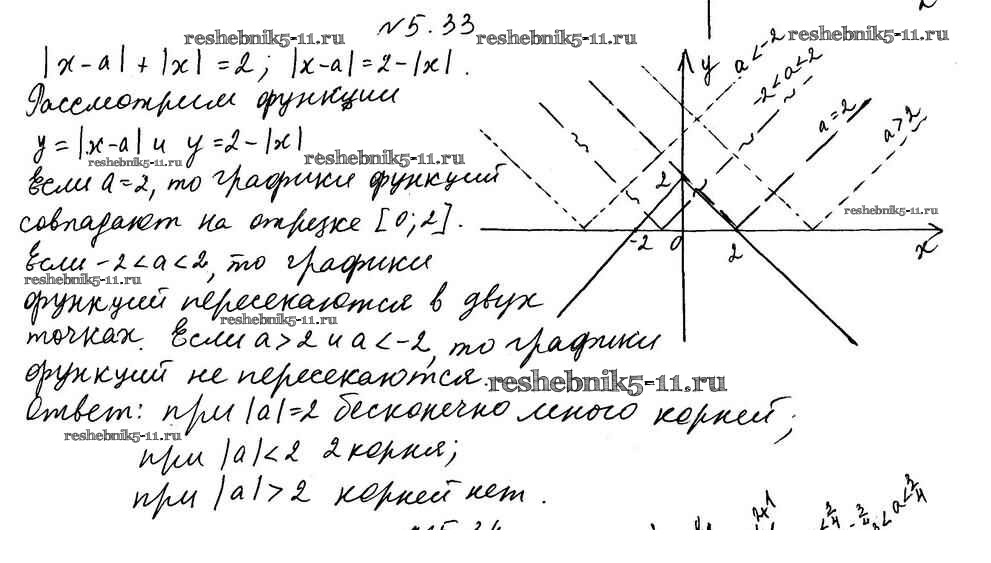 №5.33
reshebnik5-11.ru reshebnik5-11.ru reshebnik5-11.ru
|x-a|+|x|=2; |x-a|=2-|x|.
Рассмотрим функции
y=|x-a| и y=2-|x|
reshebnik5-11.ru reshebnik5-11.ru
Если a=2, то графики функций
совпадают на отрезке [0;2].
Если -2<a<2, то графики
reshebnik5-11.ru
функций пересекаются в двух
reshebnik5-11.ru
точках. Если a>2 и a<-2, то графики
функций не пересекаются.
reshebnik5-11.ru
Ответ: при |a|=2 бесконечно много корней;
reshebnik5-11.ru
при |a|<2 2 корня;
при |a|>2 корней нет.
y
a<-2
-2<a<2
a=2
a>2
reshebnik5-11.ru
2
-2 0 2 x